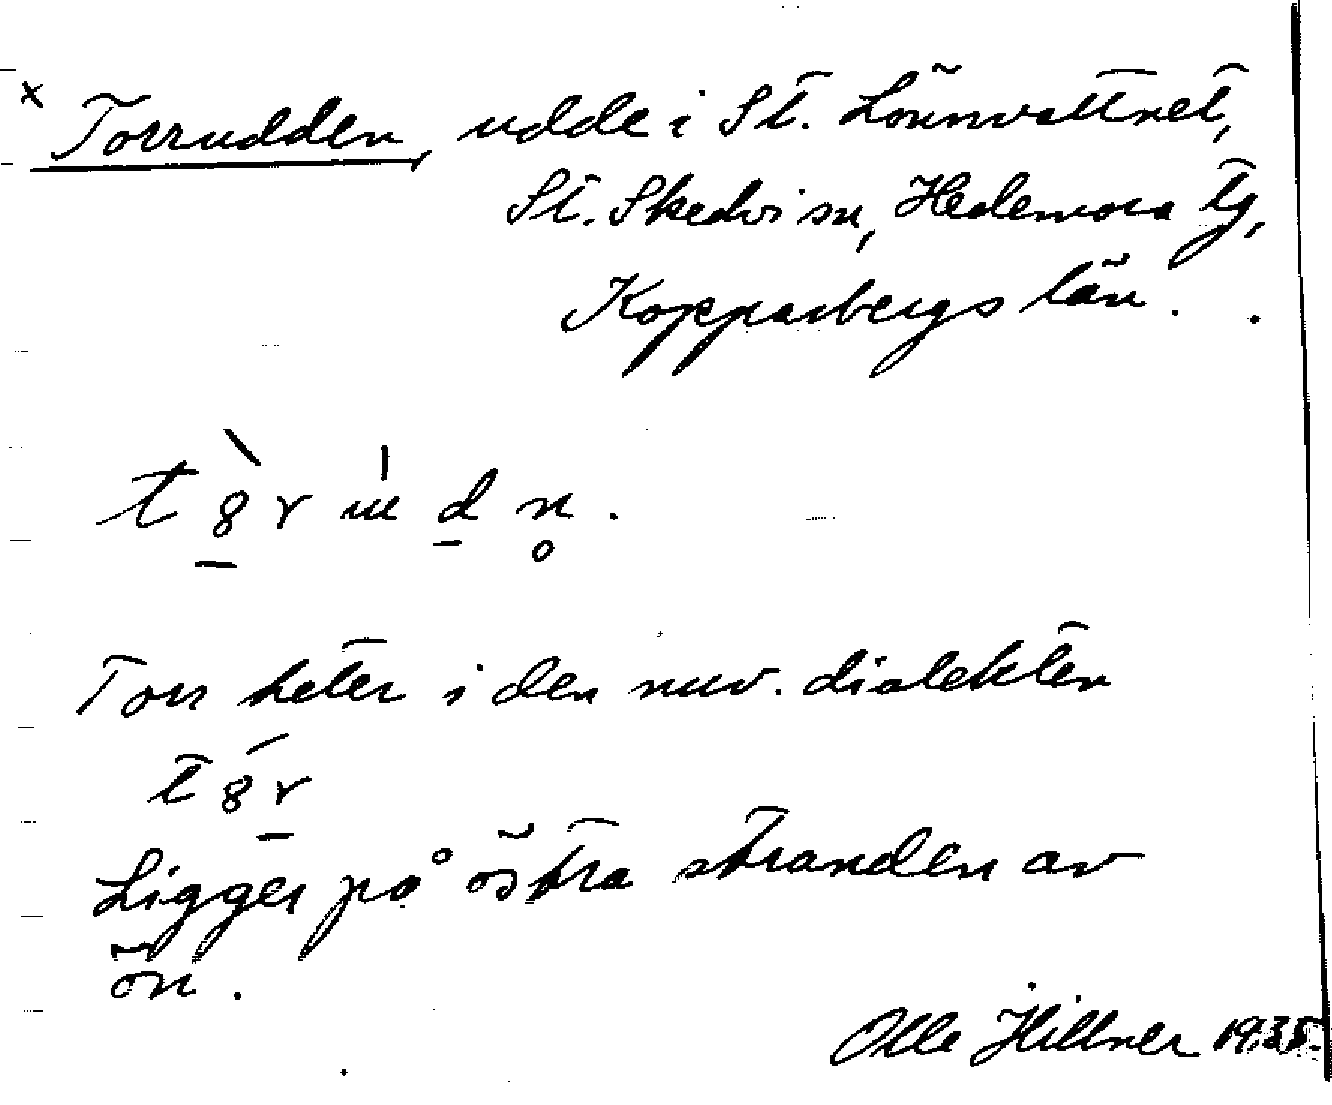 x Torrudden, udde i St. Lönnvattnet,
St. Skedvi sn, Hedemora tg,
Kopparbergs län.
Torr heter i den nuv. dialekten
Ligger på östra stranden av
ön.
Olle Hillner 1935.